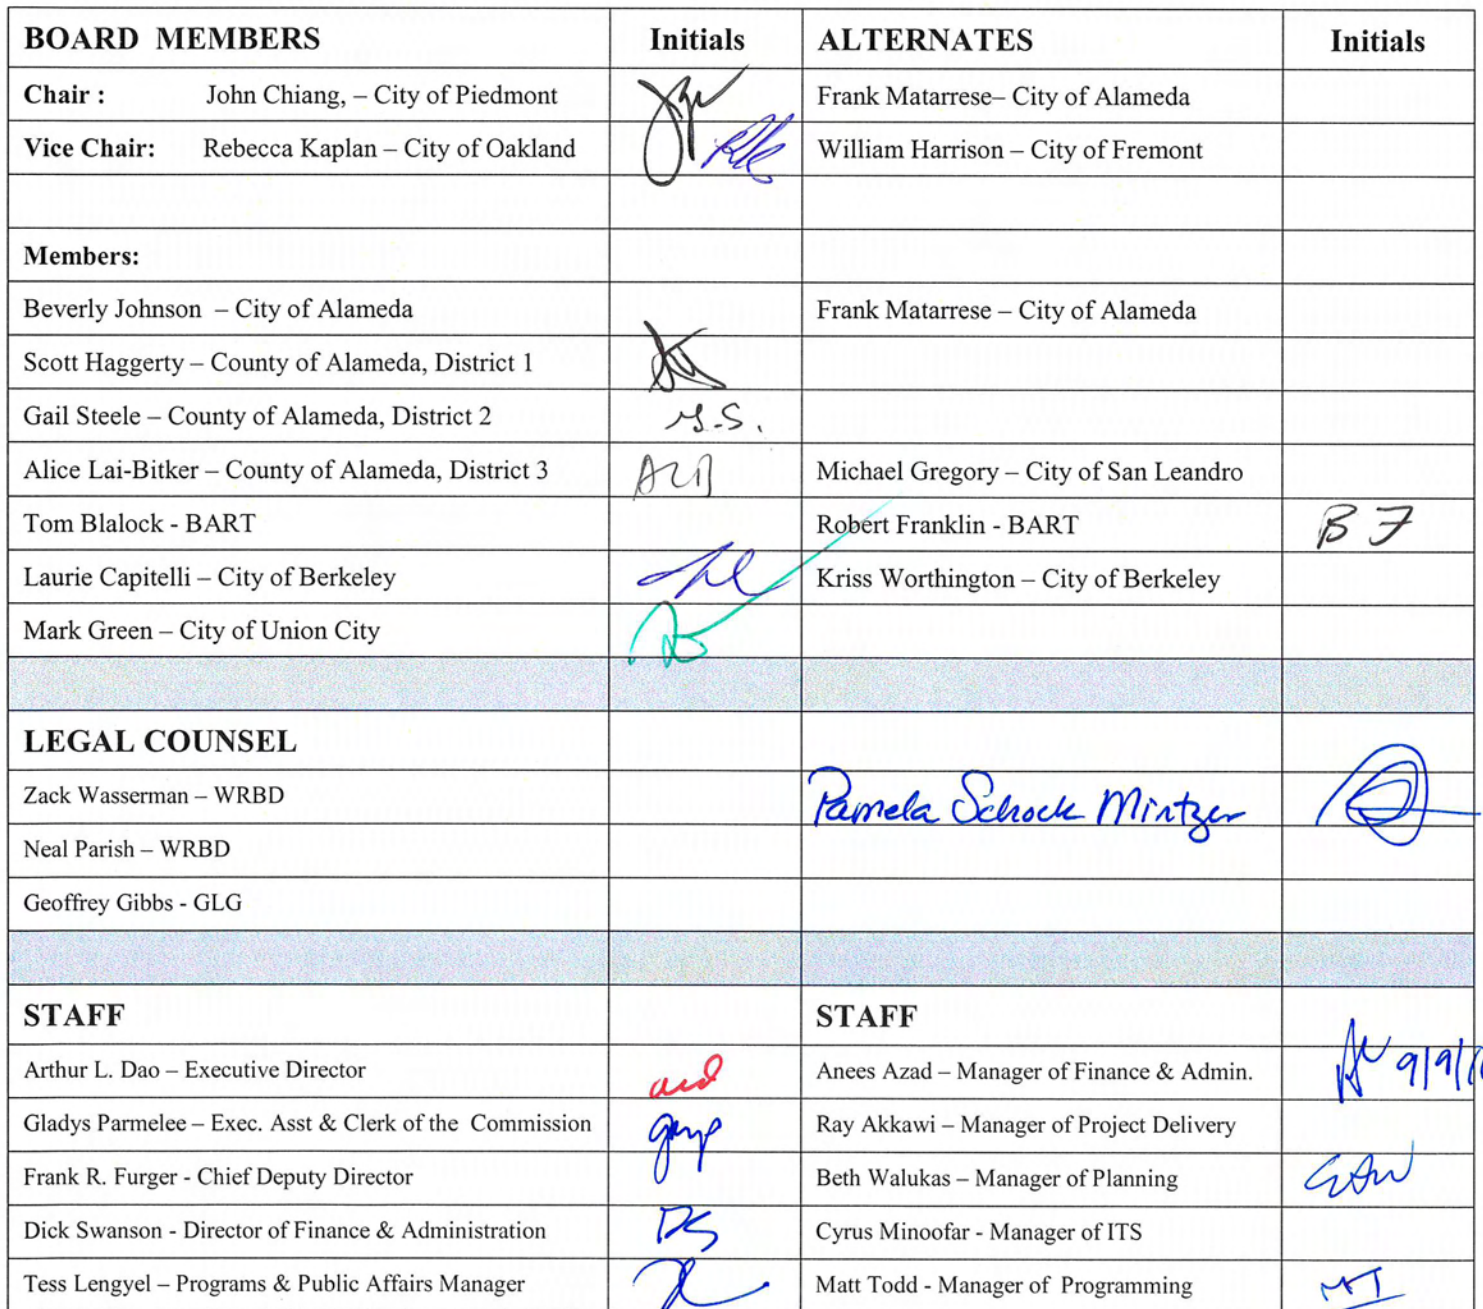 BOARD MEMBERS Initials ALTERNATES Initials
Chair : John Chiang, – City of Piedmont Frank Matarrese– City of Alameda
Vice Chair: Rebecca Kaplan – City of Oakland RK William Harrison – City of Fremont
Members:
Beverly Johnson – City of Alameda Frank Matarrese – City of Alameda
Scott Haggerty – County of Alameda, District 1
Gail Steele – County of Alameda, District 2 G.S.
Alice Lai-Bitker – County of Alameda, District 3 ALB Michael Gregory – City of San Leandro
Tom Blalock - BART Robert Franklin - BART B F
Laurie Capitelli – City of Berkeley Kriss Worthington – City of Berkeley
Mark Green – City of Union City
LEGAL COUNSEL
Zack Wasserman – WRBD Pamela Schock Mintzer
Neal Parish – WRBD
Geoffrey Gibbs - GLG
STAFF STAFF
Arthur L. Dao – Executive Director ald Anees Azad – Manager of Finance & Admin. 9/9/
Gladys Parmelee – Exec. Asst & Clerk of the Commission gvp Ray Akkawi – Manager of Project Delivery
Frank R. Furger - Chief Deputy Director Beth Walukas – Manager of Planning EAW
Dick Swanson - Director of Finance & Administration DS Cyrus Minoofar - Manager of ITS
Tess Lengyel – Programs & Public Affairs Manager Matt Todd - Manager of Programming MT